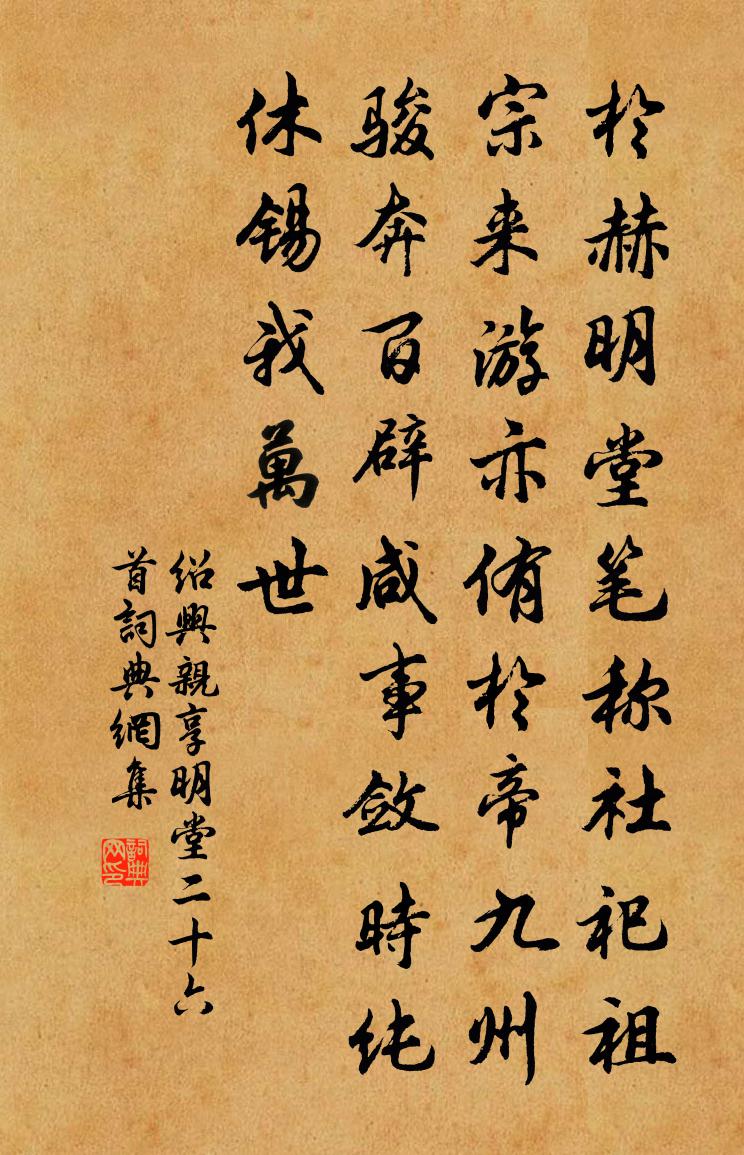 於赫明堂笔称社祀祖
宗来游亦侑於帝九州
骏奔百辟咸事敛時纯
休锡我萬世
绍興親享明堂二十六
首詞典網集
詞典网印